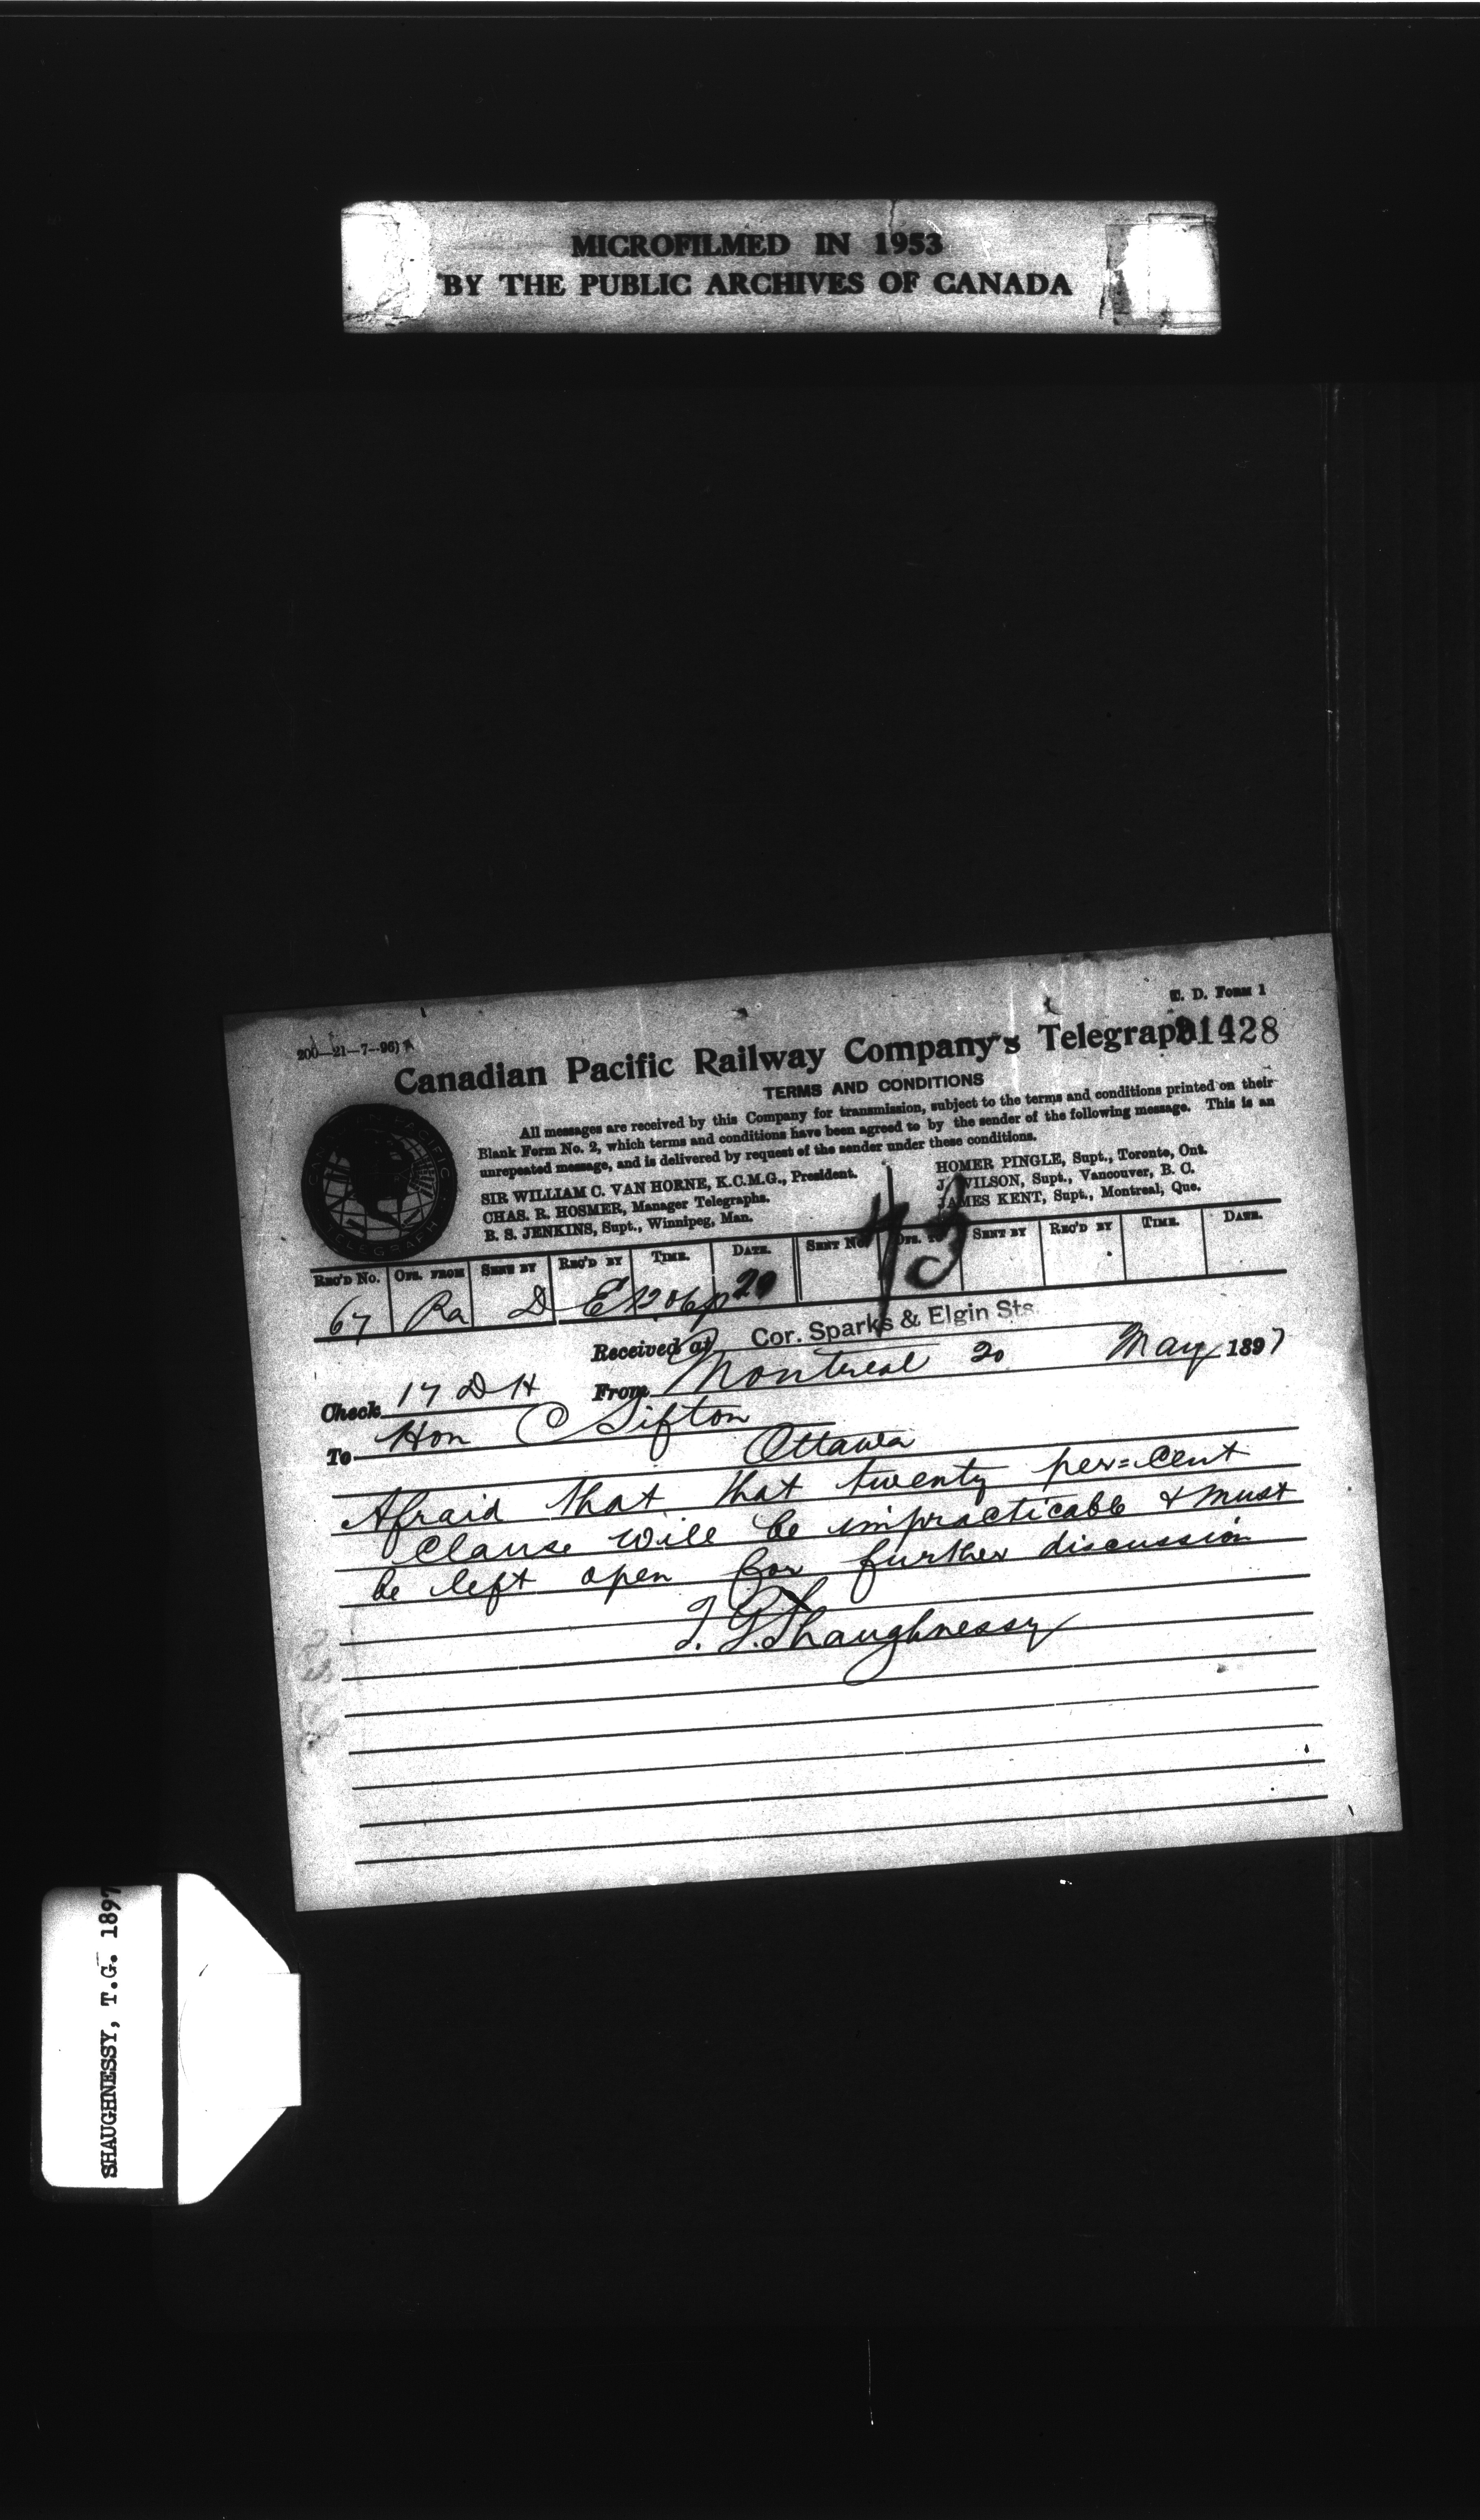 MICROFILMED IN 1953
BY THE PUBLIC ARCHIVES OF CANADA
T. D. Form 1
200—21—7--96)
Canadian Pacific Railway Company's Telegraph
21428
TERMS AND CONDITIONS
All messages are received by this Company for transmission, subject to the terms and conditions printed on their
Blank Form No. 2, which terms and conditions have been agreed to by the sender of the following message. This is an
unrepeated message, and is delivered by request of the sender under these conditions.
SIR WILLIAM C. VAN HORNE, K.C.M.G., President.
CHAS. R. HOSMER, Manager Telegraphs.
B. S. JENKINS, Supt., Winnipeg, Man.
HOMER PINGLE, Supt., Toronto, Ont.
J. WILSON, Supt., Vancouver, B. C.
JAMES KENT, Supt., Montreal, Que.
TELEGRAPH
Rec'd No. Ofs. from Sent by Rec'd by Time. Date. Sent No. Ofs. to Sent by Rec'd by Time. Date.
67 Ra D E 1206p 20
Received at Cor. Sparks & Elgin Sts.
Check 17 D H From Montreal 20 May 1897
To Hon C Sifton
Ottawa
Afraid that that twenty per=cent
Clause will be impracticable & must
be left open for further discussion
T. G. Shaughnessy
SHAUGHNESSY, T.G. 1897